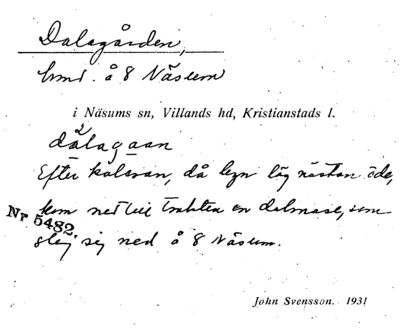 Dalagården,
hmd. å 8 Näsum
i Näsums sn, Villands hd, Kristianstads l.
dålagaan
Efter kolеran, då byn låg nästan öde,
kom ned till trakten en dalmas, som
slog sig ned å 8 Näsum.
Nr 5482.
John Svensson. 1931